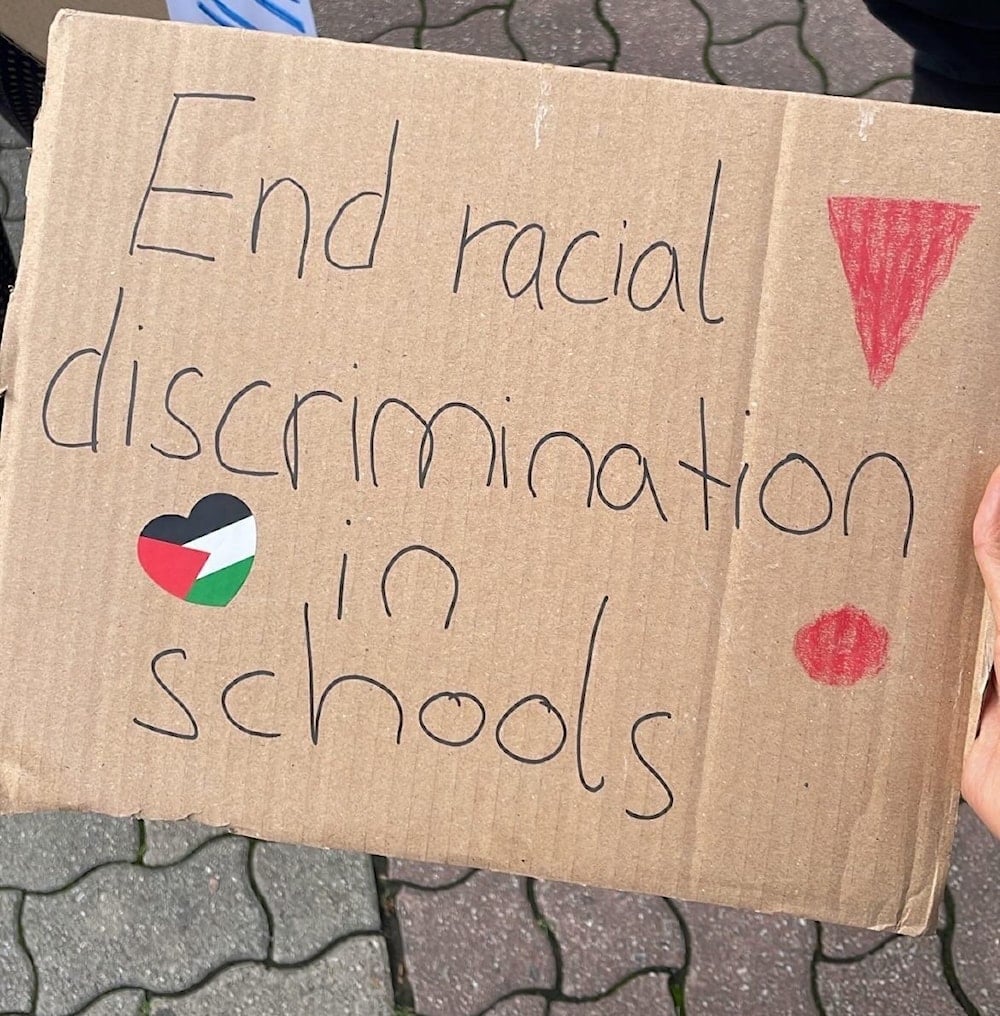 End racial
discrimination
in
schools